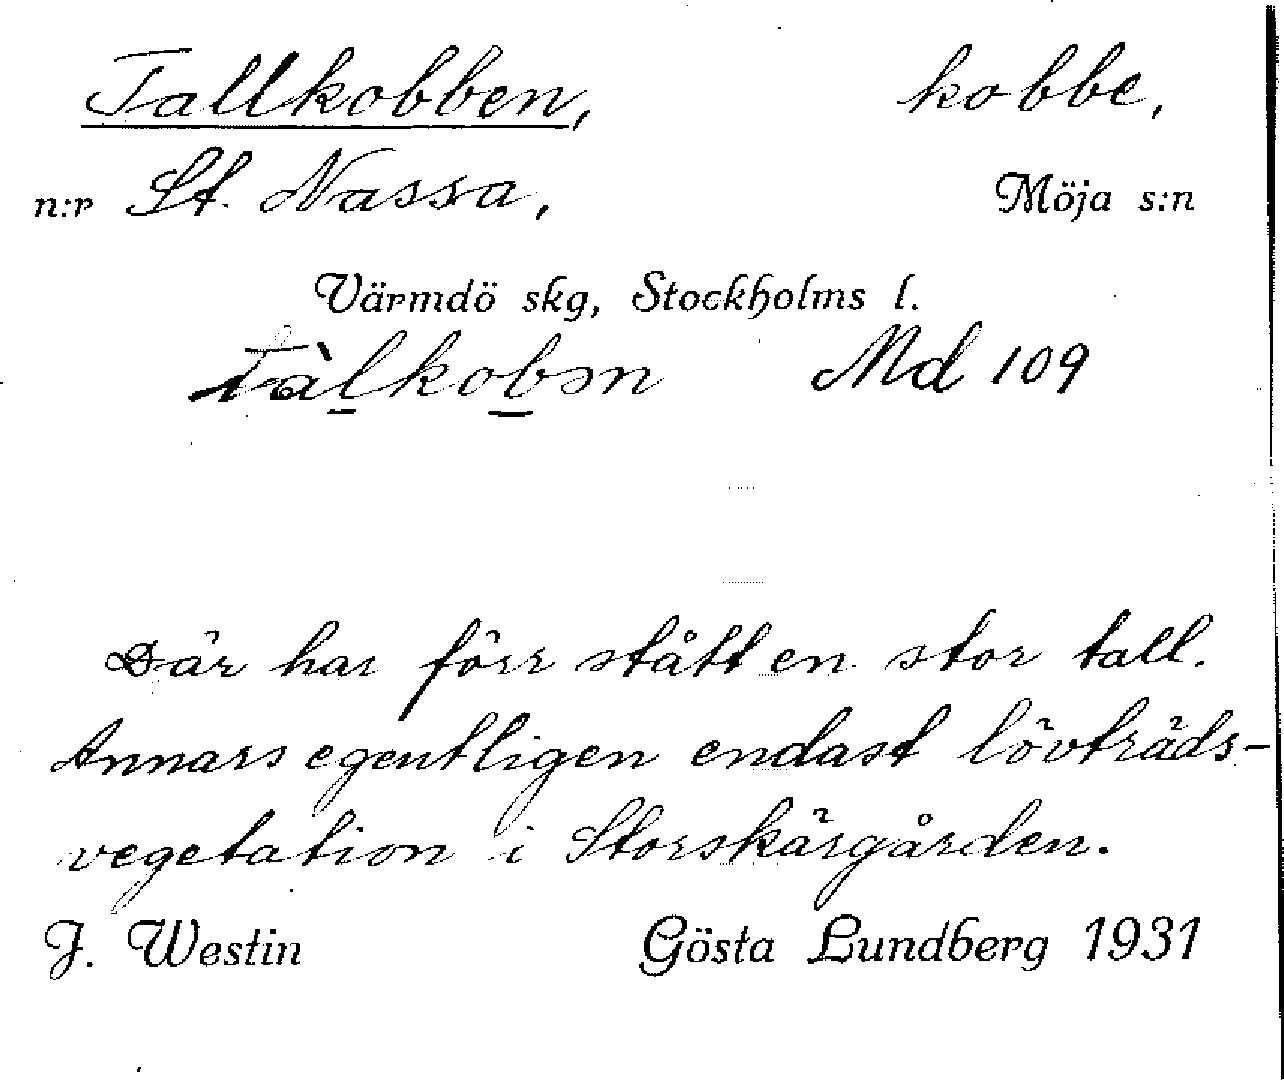 Tallkobben, kobbe,
n:r St. Nassa, Möja s:n
Värmdö skg, Stockholms l.
tàl̲kob̲ən Md 109
Där har förr stått en stor tall.
Annars egentligen endast lövträds-
vegetation i Storskärgården.
J. Westin Gösta Lundberg 1931